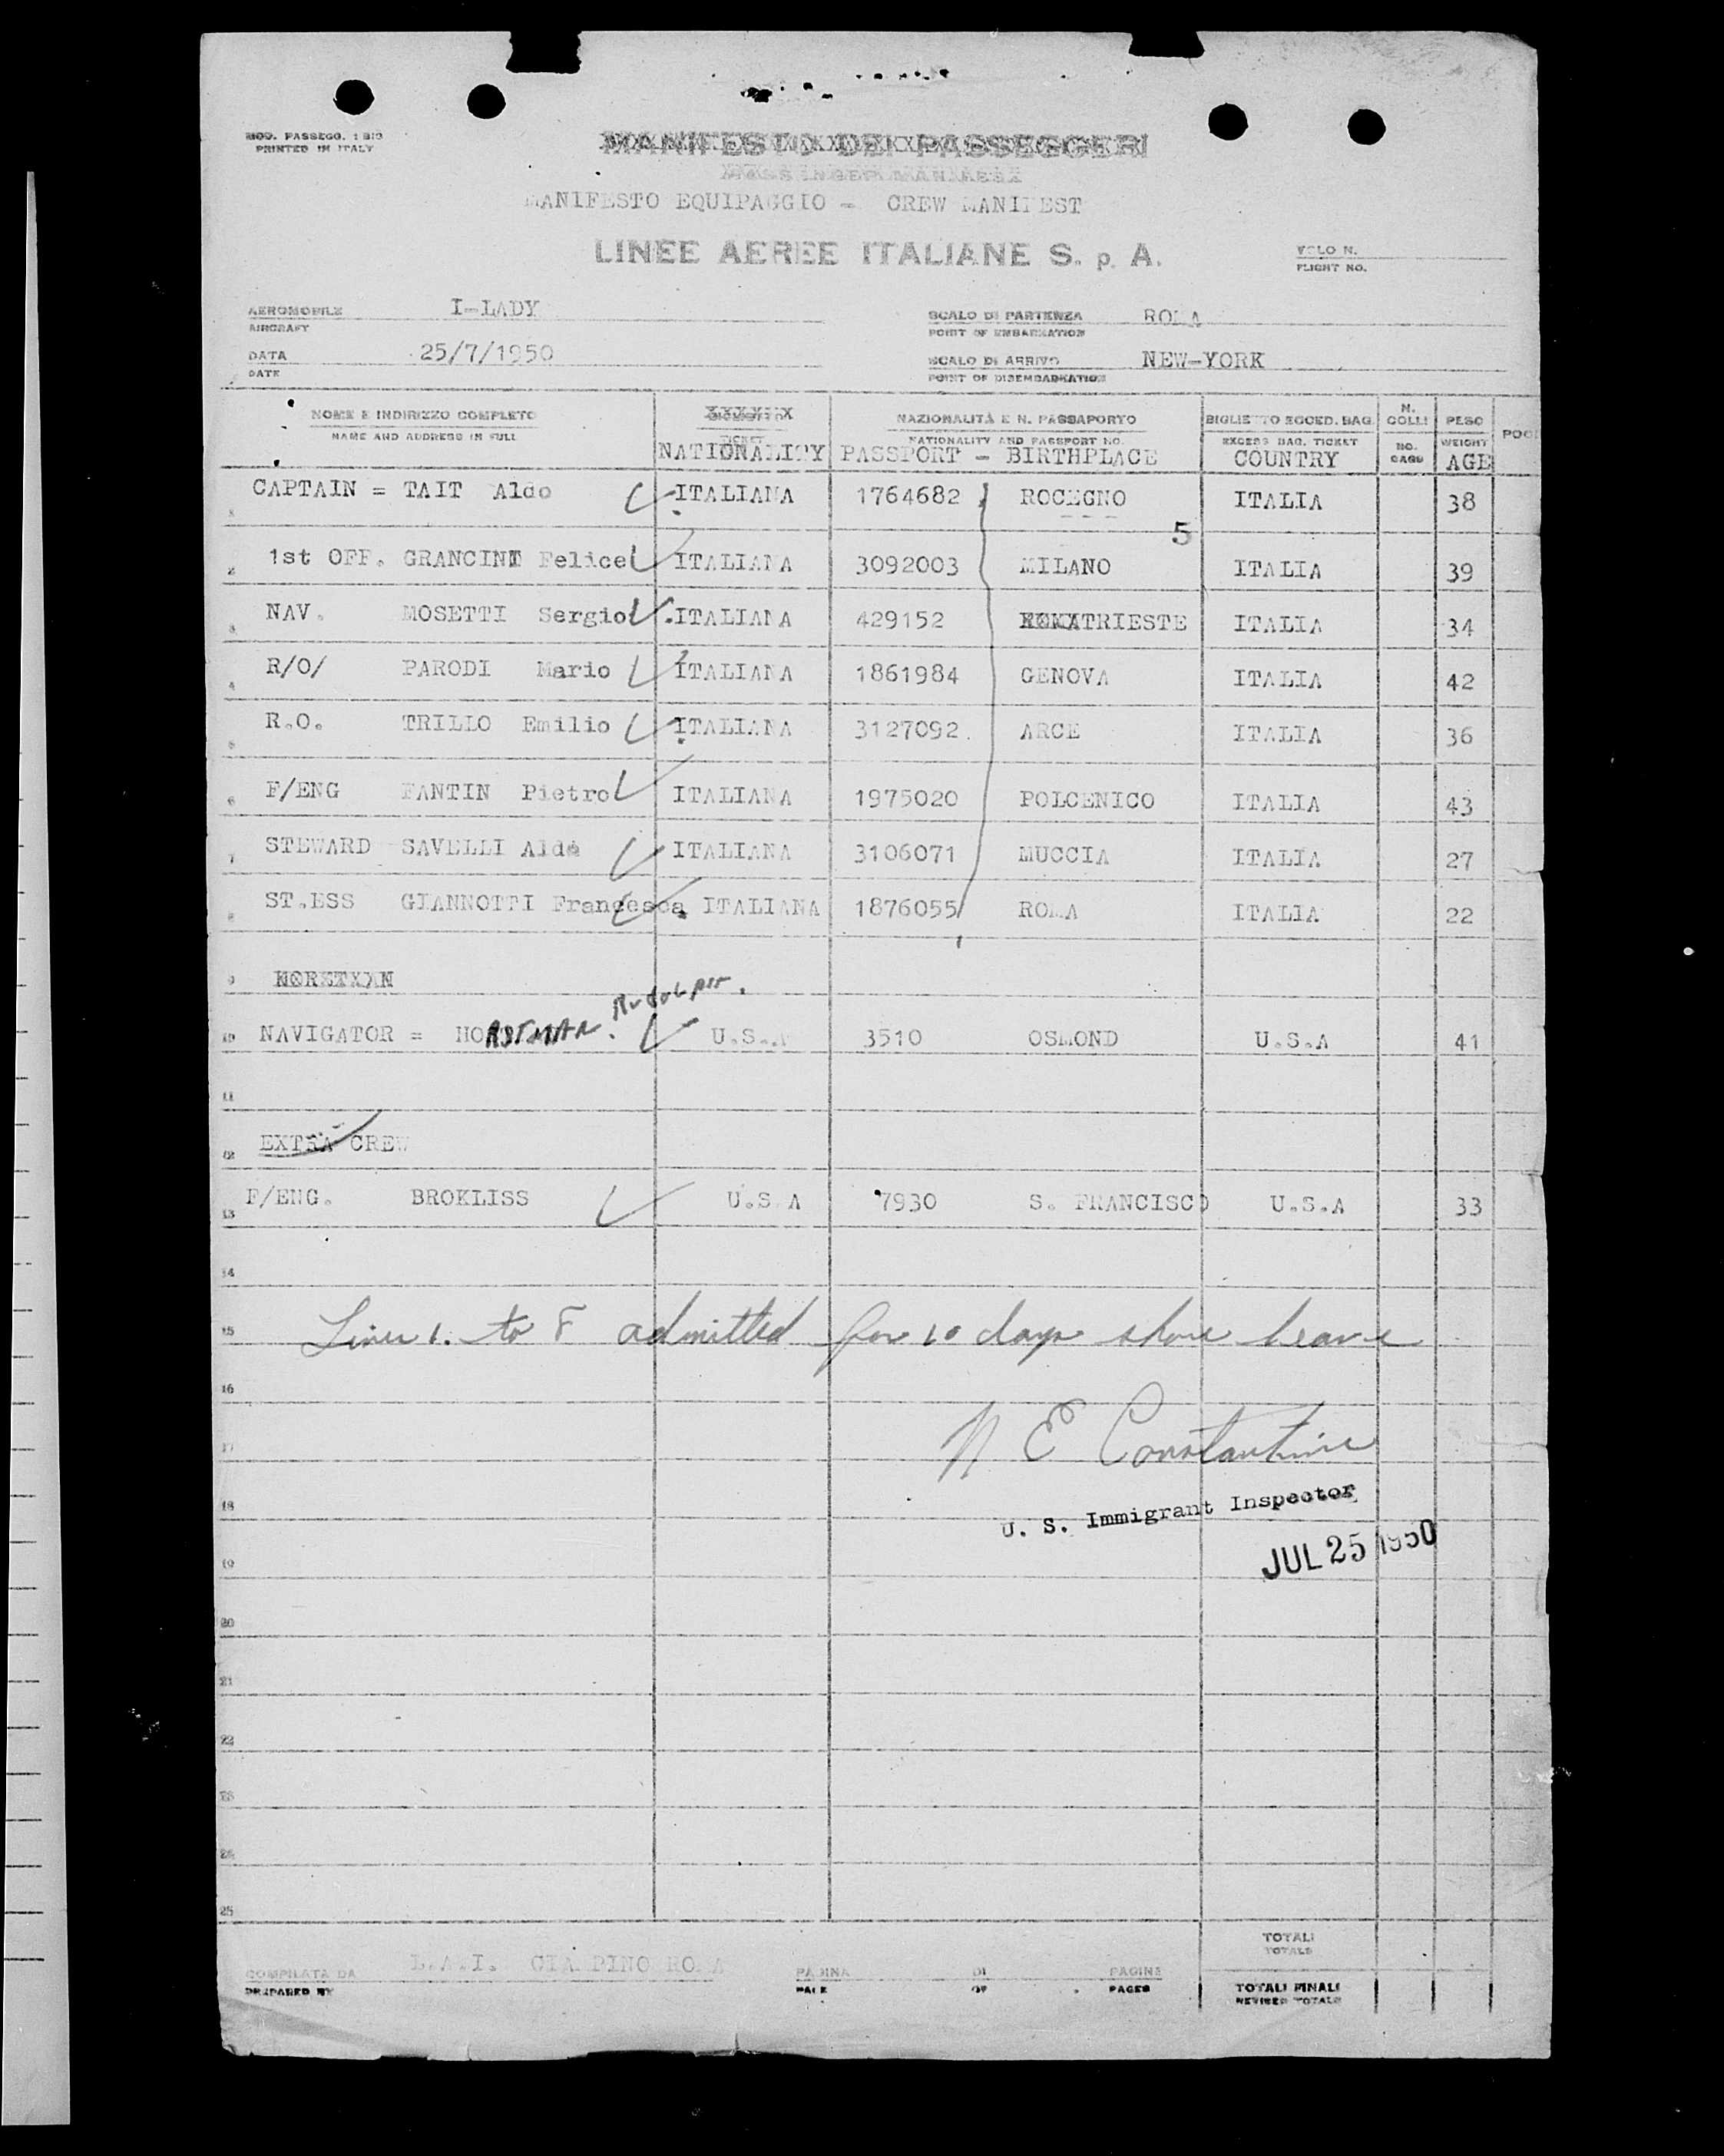 MOD. PASSEGG. 1 BIS
PRINTED IN ITALY
MANIFESTO DEI PASSEGGERI
MANIFESTO EQUIPAGGIO - CREW MANIFEST
LINEE AEREE ITALIANE S. p. A.
VOLO N.
FLIGHT NO.
AEROMOBILE I-LADY
AIRCRAFT
SCALO DI PARTENZA ROMA
POINT OF EMBARKATION
DATA 25/7/1950
DATE
SCALO DI ARRIVO NEW-YORK
POINT OF DISEMBARKATION
NOME E INDIRIZZO COMPLETO NAZIONALITÀ E N. PASSAPORTO BIGLIETTO ECCED. BAG. N. COLLI PESO
NAME AND ADDRESS IN FULL TICKET NATIONALITY AND PASSPORT NO. EXCESS BAG. TICKET NO. BAGS WEIGHT
NATIONALITY PASSPORT - BIRTHPLACE COUNTRY AGE
1 CAPTAIN = TAIT Aldo ITALIANA 1764682 ROCEGNO ITALIA 38
5
2 1st OFF. GRANCINI Felice ITALIANA 3092003 MILANO ITALIA 39
3 NAV. MOSETTI Sergio ITALIANA 429152 TRIESTE ITALIA 34
4 R/O/ PARODI Mario ITALIANA 1861984 GENOVA ITALIA 42
5 R.O. TRILLO Emilio ITALIANA 3127092 ARCE ITALIA 36
6 F/ENG FANTIN Pietro ITALIANA 1975020 POLCENICO ITALIA 43
7 STEWARD SAVELLI Aldo ITALIANA 3106071 MUCCIA ITALIA 27
8 ST.ESS GIANNOTTI Francesca ITALIANA 1876055 ROMA ITALIA 22
9
Rudolph.
10 NAVIGATOR = HORSTMAN. U.S.A 3510 OSMOND U.S.A 41
11
12 EXTRA CREW
13 F/ENG. BROKLISS U.S.A 7930 S. FRANCISCO U.S.A 33
14
15 Lines 1. to 8 admitted for 10 days shore leave
16
17 N E Constantine
18 U. S. Immigrant Inspector
19 JUL 25 1950
20
21
22
23
24
25
TOTALI
TOTALS
COMPILATA DA L.A.I. CIAMPINO ROMA PAGINA DI PAGINE
PREPARED BY PAGE OF PAGES
TOTALI FINALI
REVISED TOTALS